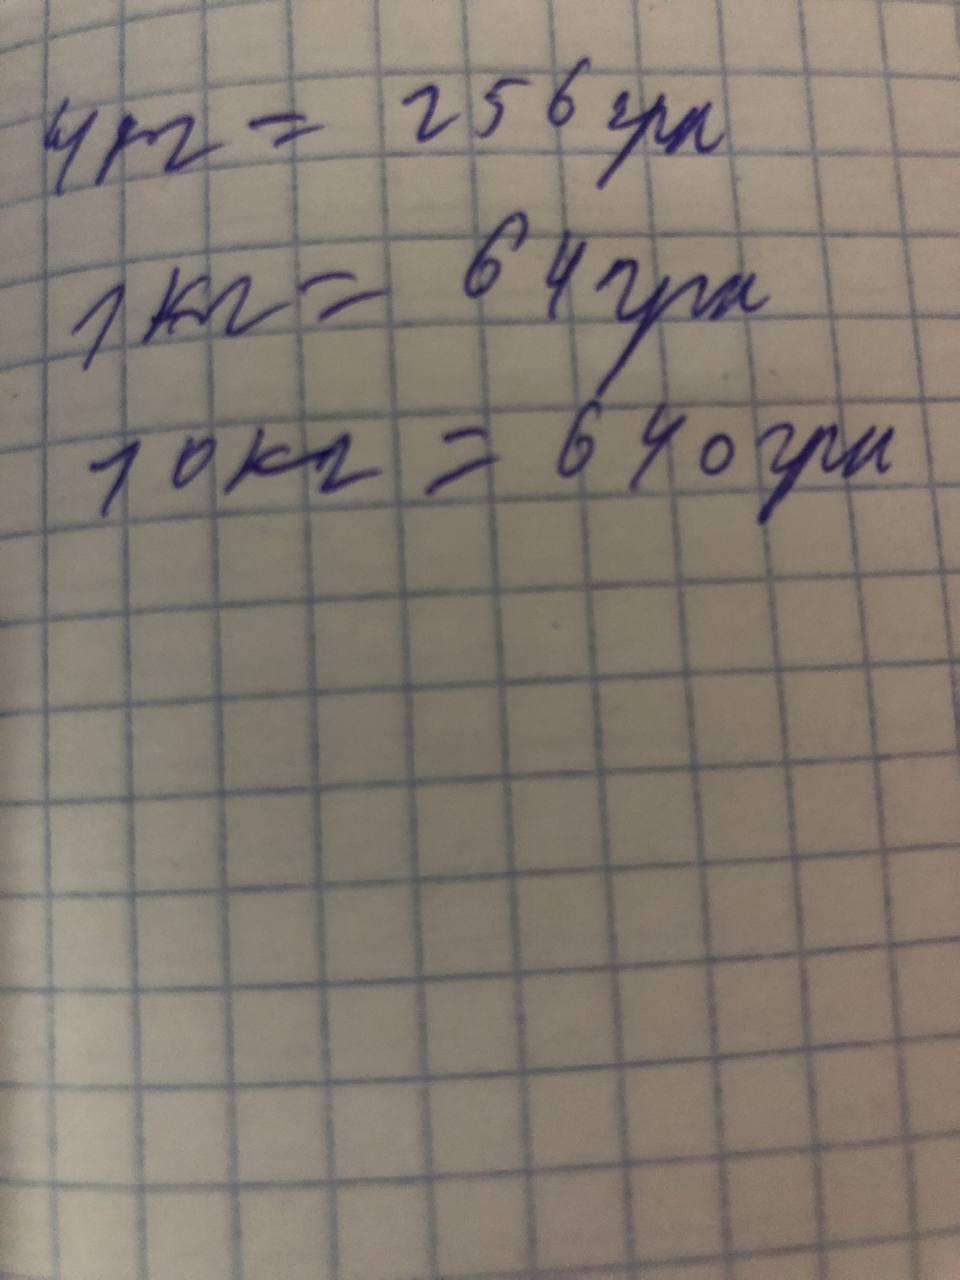 4кг = 256 грн
1кг = 64 грн
10кг = 640 грн